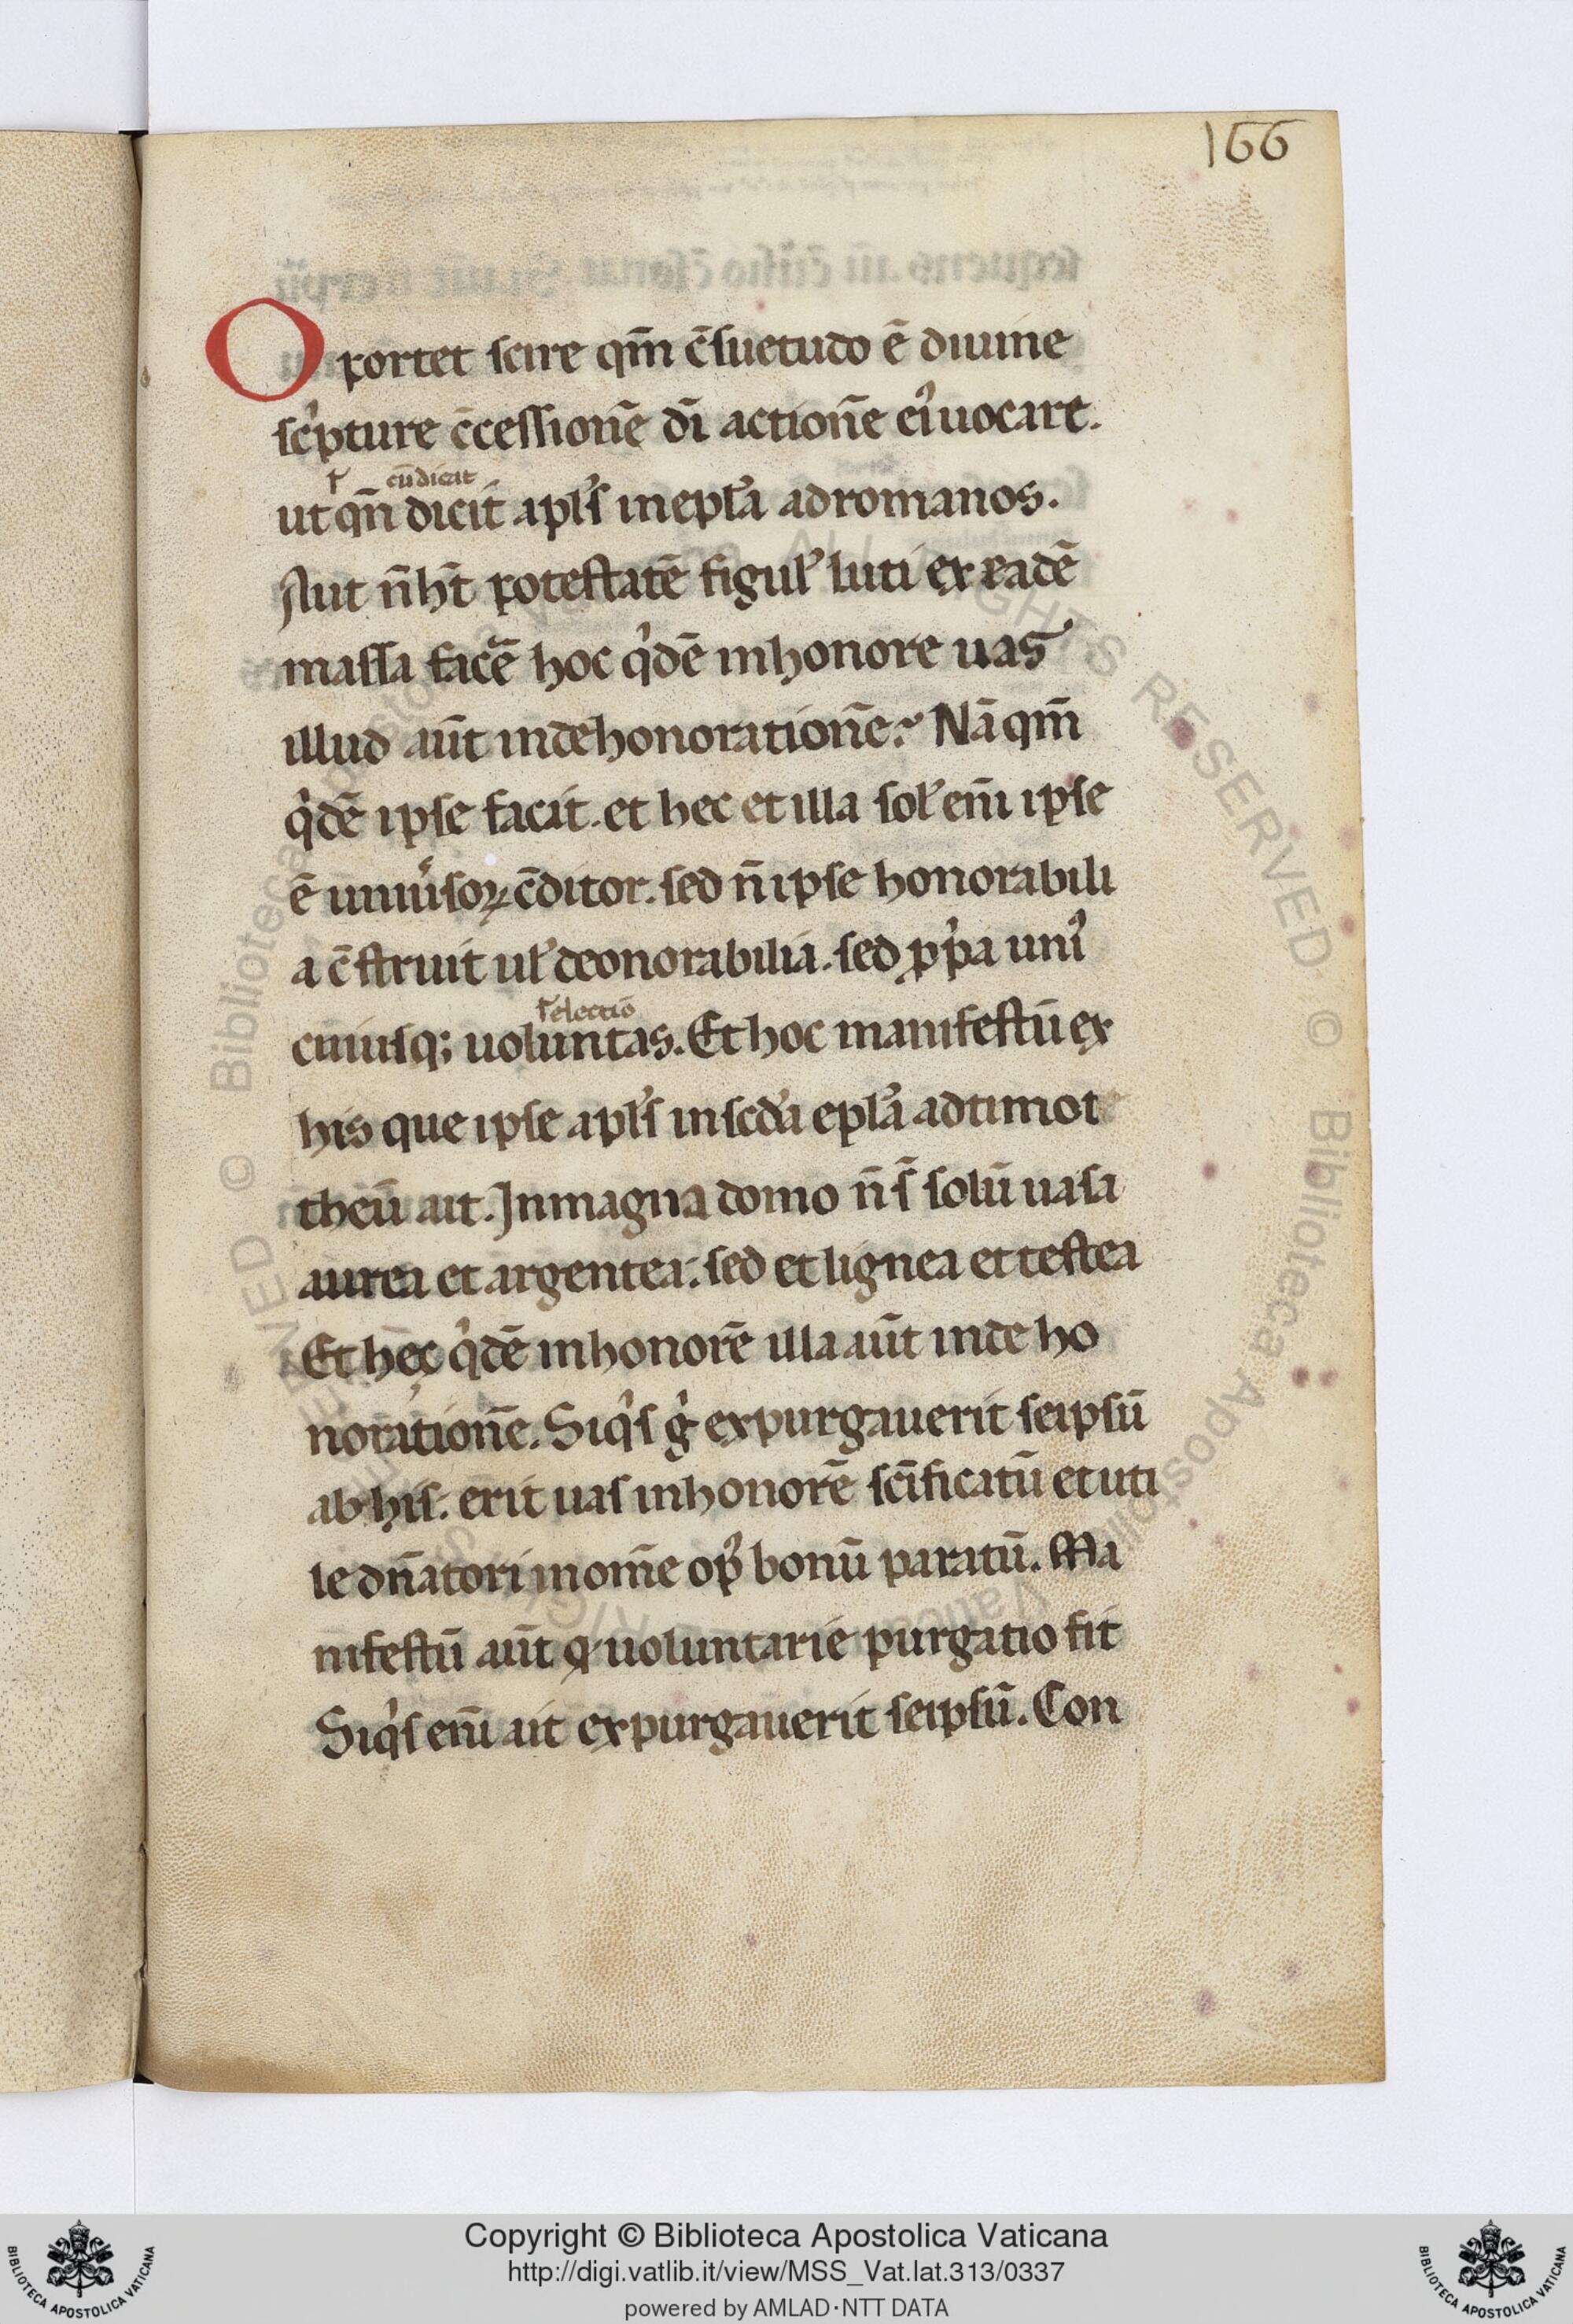 166
Oportet scire qm̄ c̄suetudo ē diuine
sc͛pture c̄cessionē dī actionē ei᾽uocare.
ł cū dicit
ut qn̄ dicit apl̓s in epl̓a ad romanos.
Aut n̄ ht̄ potestatē figul᾽ luti ex eadē
massa facē hoc q᾽dē in honore uas
illud aūt in dehonorationē? Nā qm̄
q᾽dē ipse facit. et hec et illa sol᾽ enī ipse
ē uniu͛soꝝ c̄ditor. sed n̄ ipse honorabili
a c̄struit ul᾽ deonorabilia. sed ꝓp᾽a uni᾽
ł electio
cuiusq; uoluntas. Et hoc manifestū ex
his que ipse apl̓s in scd̓a epl̓a ad timot
theū ait. In magna domo n̄ s̄ solū uasa
aurea et argentea. sed et lignea et testea
Et hec q᾽dē in honorē illa aūt in deho
norationē. Siq᾽s g᾽ expurgauerit seipsū
ab his. erit uas in honorē sc̄ificatū et uti
le dn̄atori in om̄e op᾽ bonū paratū. Ma
nifestū aūt ꝙ uoluntarie purgatio fit
Siq᾽s enī ait expurgauerit seipsū. Con
Copyright © Biblioteca Apostolica Vaticana
http://digi.vatlib.it/view/MSS_Vat.lat.313/0337
powered by AMLAD·NTT DATA
BIBLIOTECA APOSTOLICA VATICANA
BIBLIOTECA APOSTOLICA VATICANA